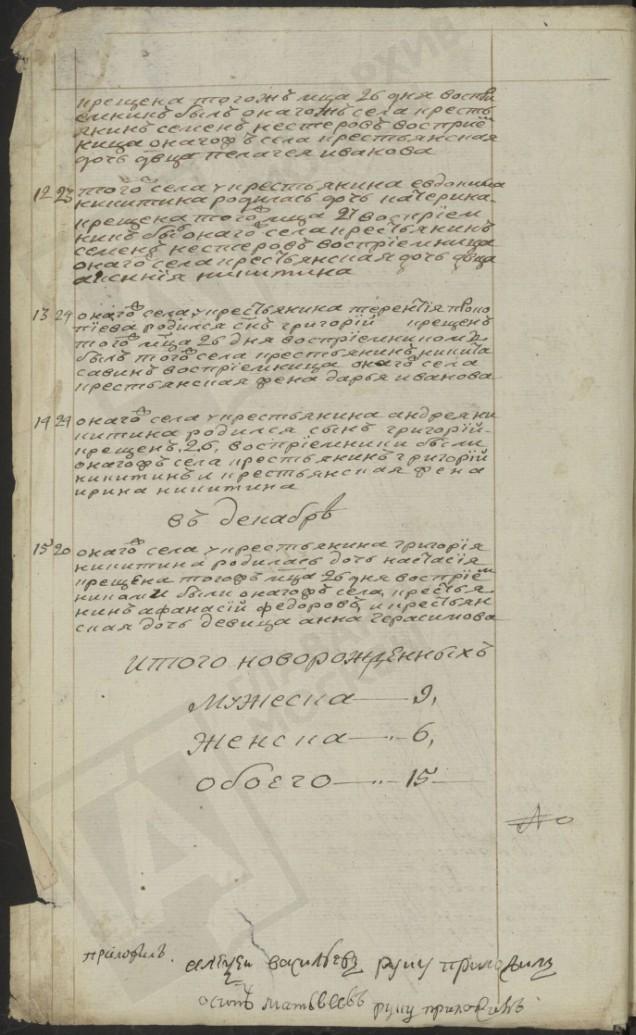 крещена тогожъ мца 26 дня воспрі
емникъ былъ онагожъ села кресть
янинъ семенъ нестеровъ воспріем
ница онагожъ села крестьянская
дочь двца пелагея иванова
12 23 тогожъ села у крестьянина евдокима
никитина родилась дочь катерина
крещена тогожъ мца 27 воспріем
никъ былъ онагожъ села крестьянинъ
семенъ нестеровъ воспріемница
онагожъ села крестьянская дочь двца
аксинія никитина
13 24 онагожъ села у крестьянина терентія проко
піева родился снъ григорій крещенъ
тогожъ мца 26 дня воспріемникомъ
былъ тогожъ села крестьянинъ никита
савинъ воспріемница онагожъ села
крестьянская жена дарья иванова
14 24 онагожъ села у крестьянина андрея ни
китина родился сынъ григорій
крещенъ 26, воспріемники были
онагожъ села крестьянинъ григорій
никитинъ и крестьянская жена
ирина никитина
въ декабрѣ
15 20 онагожъ села у крестьянина григорія
никитина родилась дочь настасія
крещена тогожъ мца 26 дня воспріем
никами были онагожъ села крестья
нинъ афанасій федоровъ и крестьян
ская дочь девица анна герасимова
Итого новорожденныхъ
Мужеска — 9,
Женска — 6,
обоего — 15
приложилъ.
васильевъ руку приложилъ
осипъ матвеевъ руку приложилъ